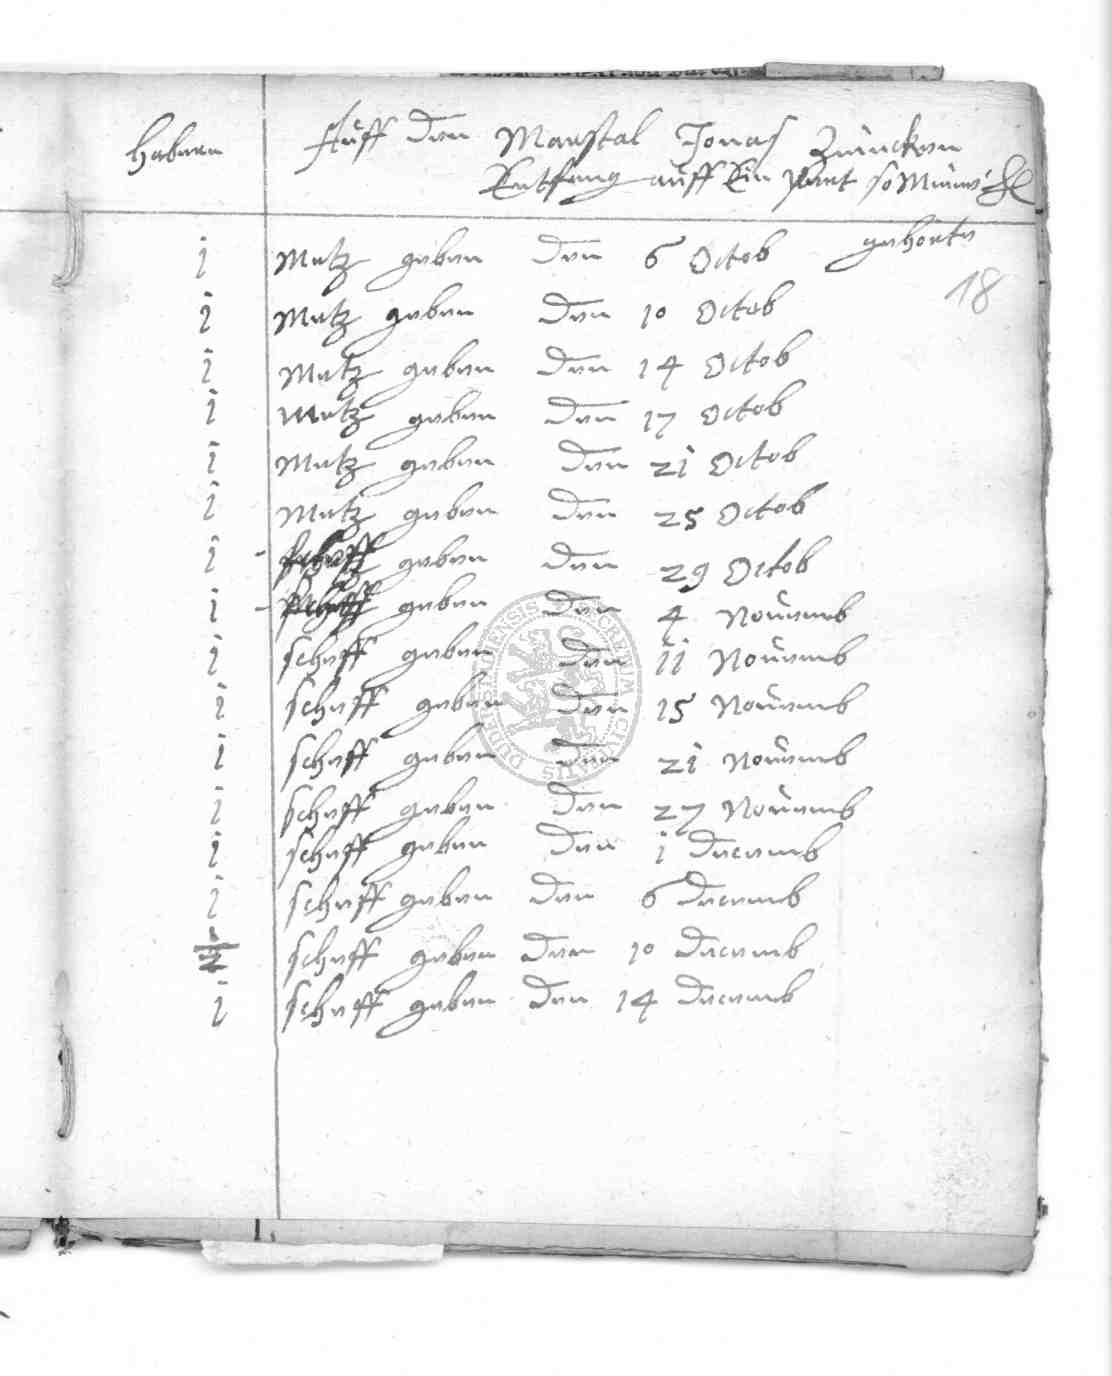 Habern
Auff den Marstal Jonas Zwincken
Entfang auff Ein Pert so Meine H
gehorte
18
i Metz geben den 6 Octob
i Metz geben den 10 Octob
i Metz geben den 14 Octob
i Metz geben den 17 Octob
i Metz geben den 21 Octob
i Metz geben den 25 Octob
i - scheff geben den 29 Octob
i - scheff geben den 4 Nouemb
i scheff geben den ii Nouemb
i scheff geben den 15 Nouemb
i scheff geben den 21 Nouemb
i scheff geben den 27 Nouemb
i scheff geben den i Decemb
i scheff geben den 6 Decemb
scheff geben den 10 Decemb
i scheff geben den 14 Decemb
DUDERSTADENSIS SECRETUM CIVITATIS